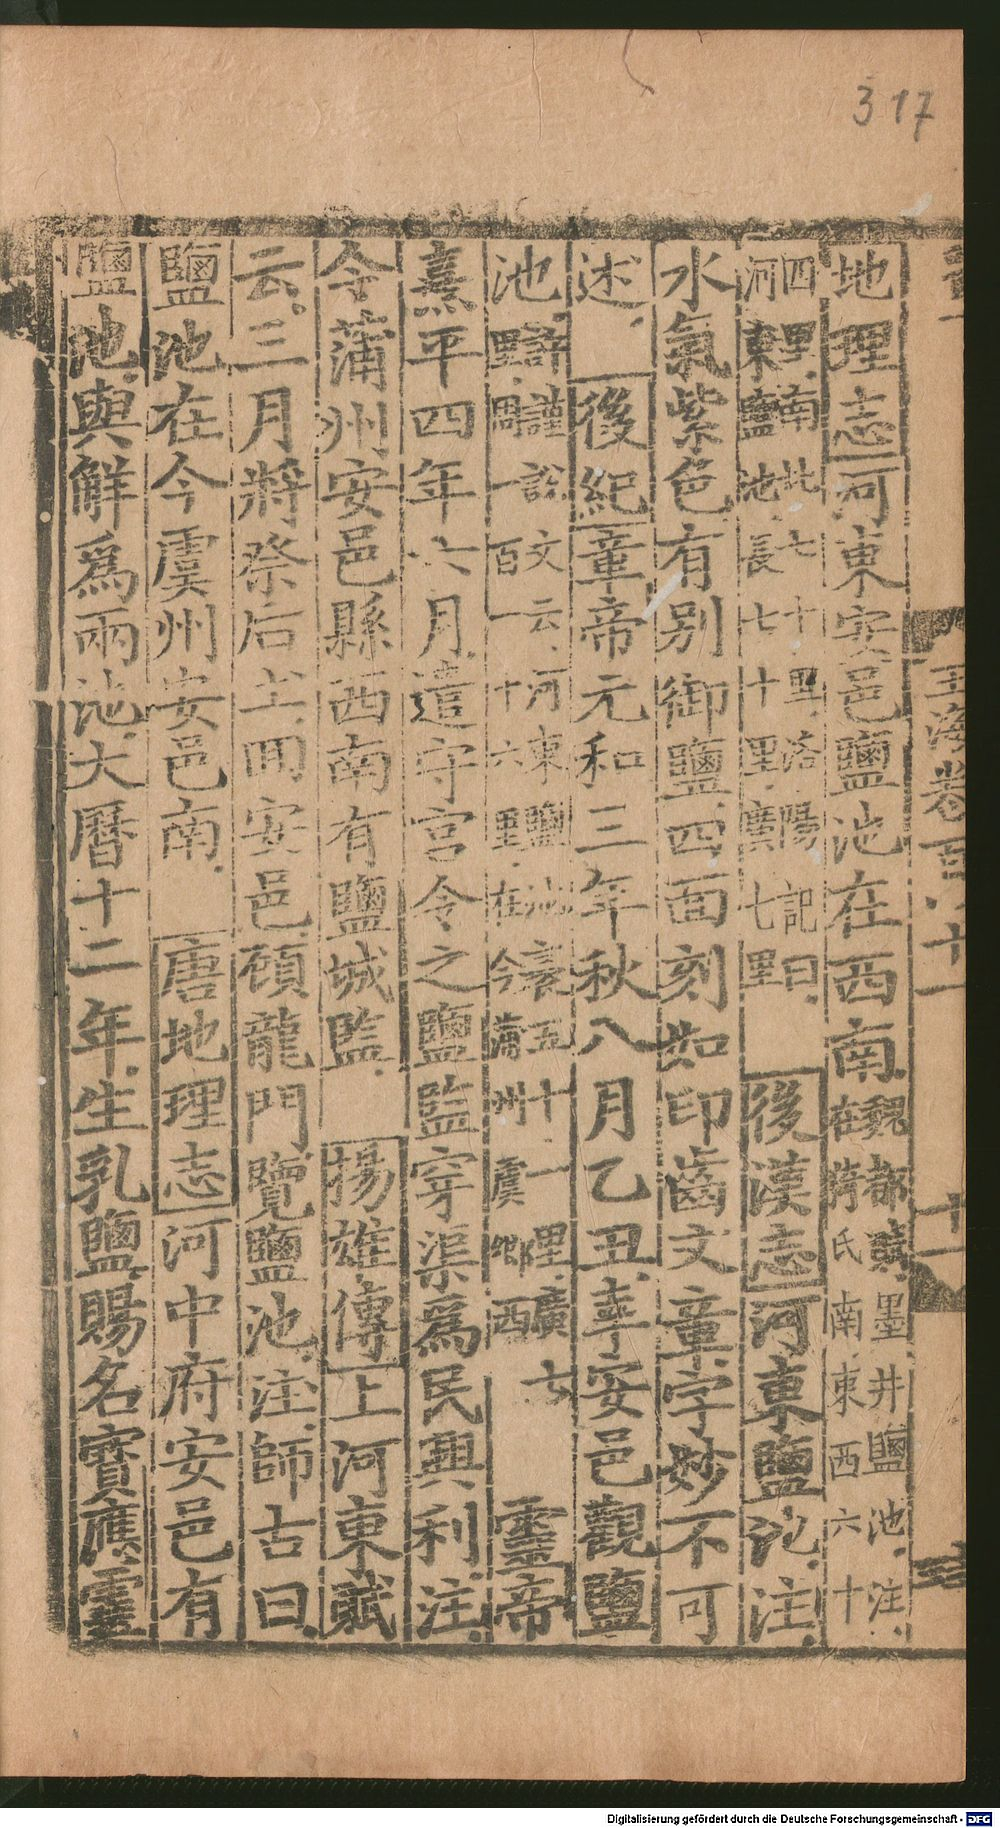 317
玉海卷百八十一
十一
地理志河東安邑鹽池在西南魏都賦墨井鹽池注
在猗氏南東西六十
四里南北七十里洛陽記曰
河東鹽池長七十里廣七里後漢志河東鹽池注
水氣紫色有別御鹽四面刻如印齒文章字妙不可
述後紀章帝元和三年秋八月乙丑幸安邑觀鹽
池許謹說文云河東鹽池袤五十一里廣七
野周一百一十六里在今蒲州虞鄉西靈帝
熹平四年六月遣守宮令之鹽監穿渠為民興利注
今蒲州安邑縣西南有鹽城監揚雄傳上河東賦
云三月將祭后土回安邑顧龍門覽鹽池注師古曰
鹽池在今虞州安邑南唐地理志河中府安邑有
鹽池與解為兩池大曆十二年生乳鹽賜名寶應靈
Digitalisierung gefördert durch die Deutsche Forschungsgemeinschaft - DFG